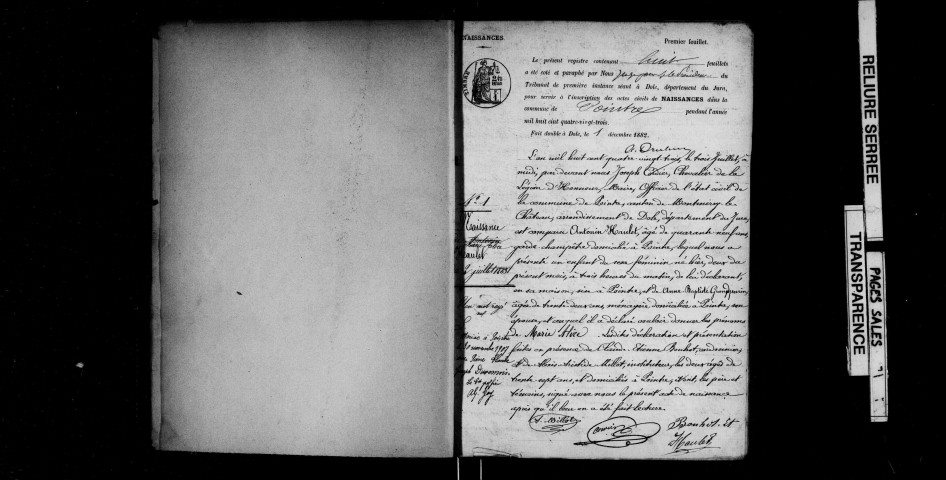 NAISSANCES.
Premier feuillet.
Le présent registre contenant huit feuillets
a été coté et paraphé par Nous Juge pour le Président du
Tribunal de première instance séant à Dole, département du Jura,
pour servir à l'inscription des actes civils de NAISSANCES dans la
commune de Pointre pendant l'année
mil huit cent quatre-vingt-trois.
Fait double à Dole, le 1 décembre 1882.
L'an mil huit cent quatre-vingt trois, le trois Juillet, à
midi, par devant nous Joseph Chevalier de la
Légion d'Honneur, Maire, Officier de l'état civil de
la commune de Pointre, canton de Montmirey le
Château, arrondissement de Dole, département du Jura,
est comparu Antonin Haulet, âgé de quarante neuf ans,
garde champêtre domicilié à Pointre, lequel nous a
présenté un enfant du sexe féminin né hier, deux du
présent mois, à trois heures du matin, de lui déclarant,
en sa maison, sise à Pointre, et de Anne Baptiste
âgée de trente deux ans, ménagère, domiciliée à Pointre, son
épouse, et auquel il a déclaré vouloir donner les prénoms
de Marie Alice Lesdites déclaration et présentation
faites en présence de Claude Etienne Bouhet, cordonnier,
et de Alexis Aristide Millot, instituteur, les deux âgés de
trente sept ans, et domiciliés à Pointre, et ont, les père et
témoins, signé avec nous le présent acte de naissance
après qu'il leur en a été fait lecture.
A. Millot
Bouhet Et
Haulet
N° 1
Naissance
Haulet
2 juillet 1883
novembre 1907
RELIURE SERREE
TRANSPARENCE
PAGES SALES